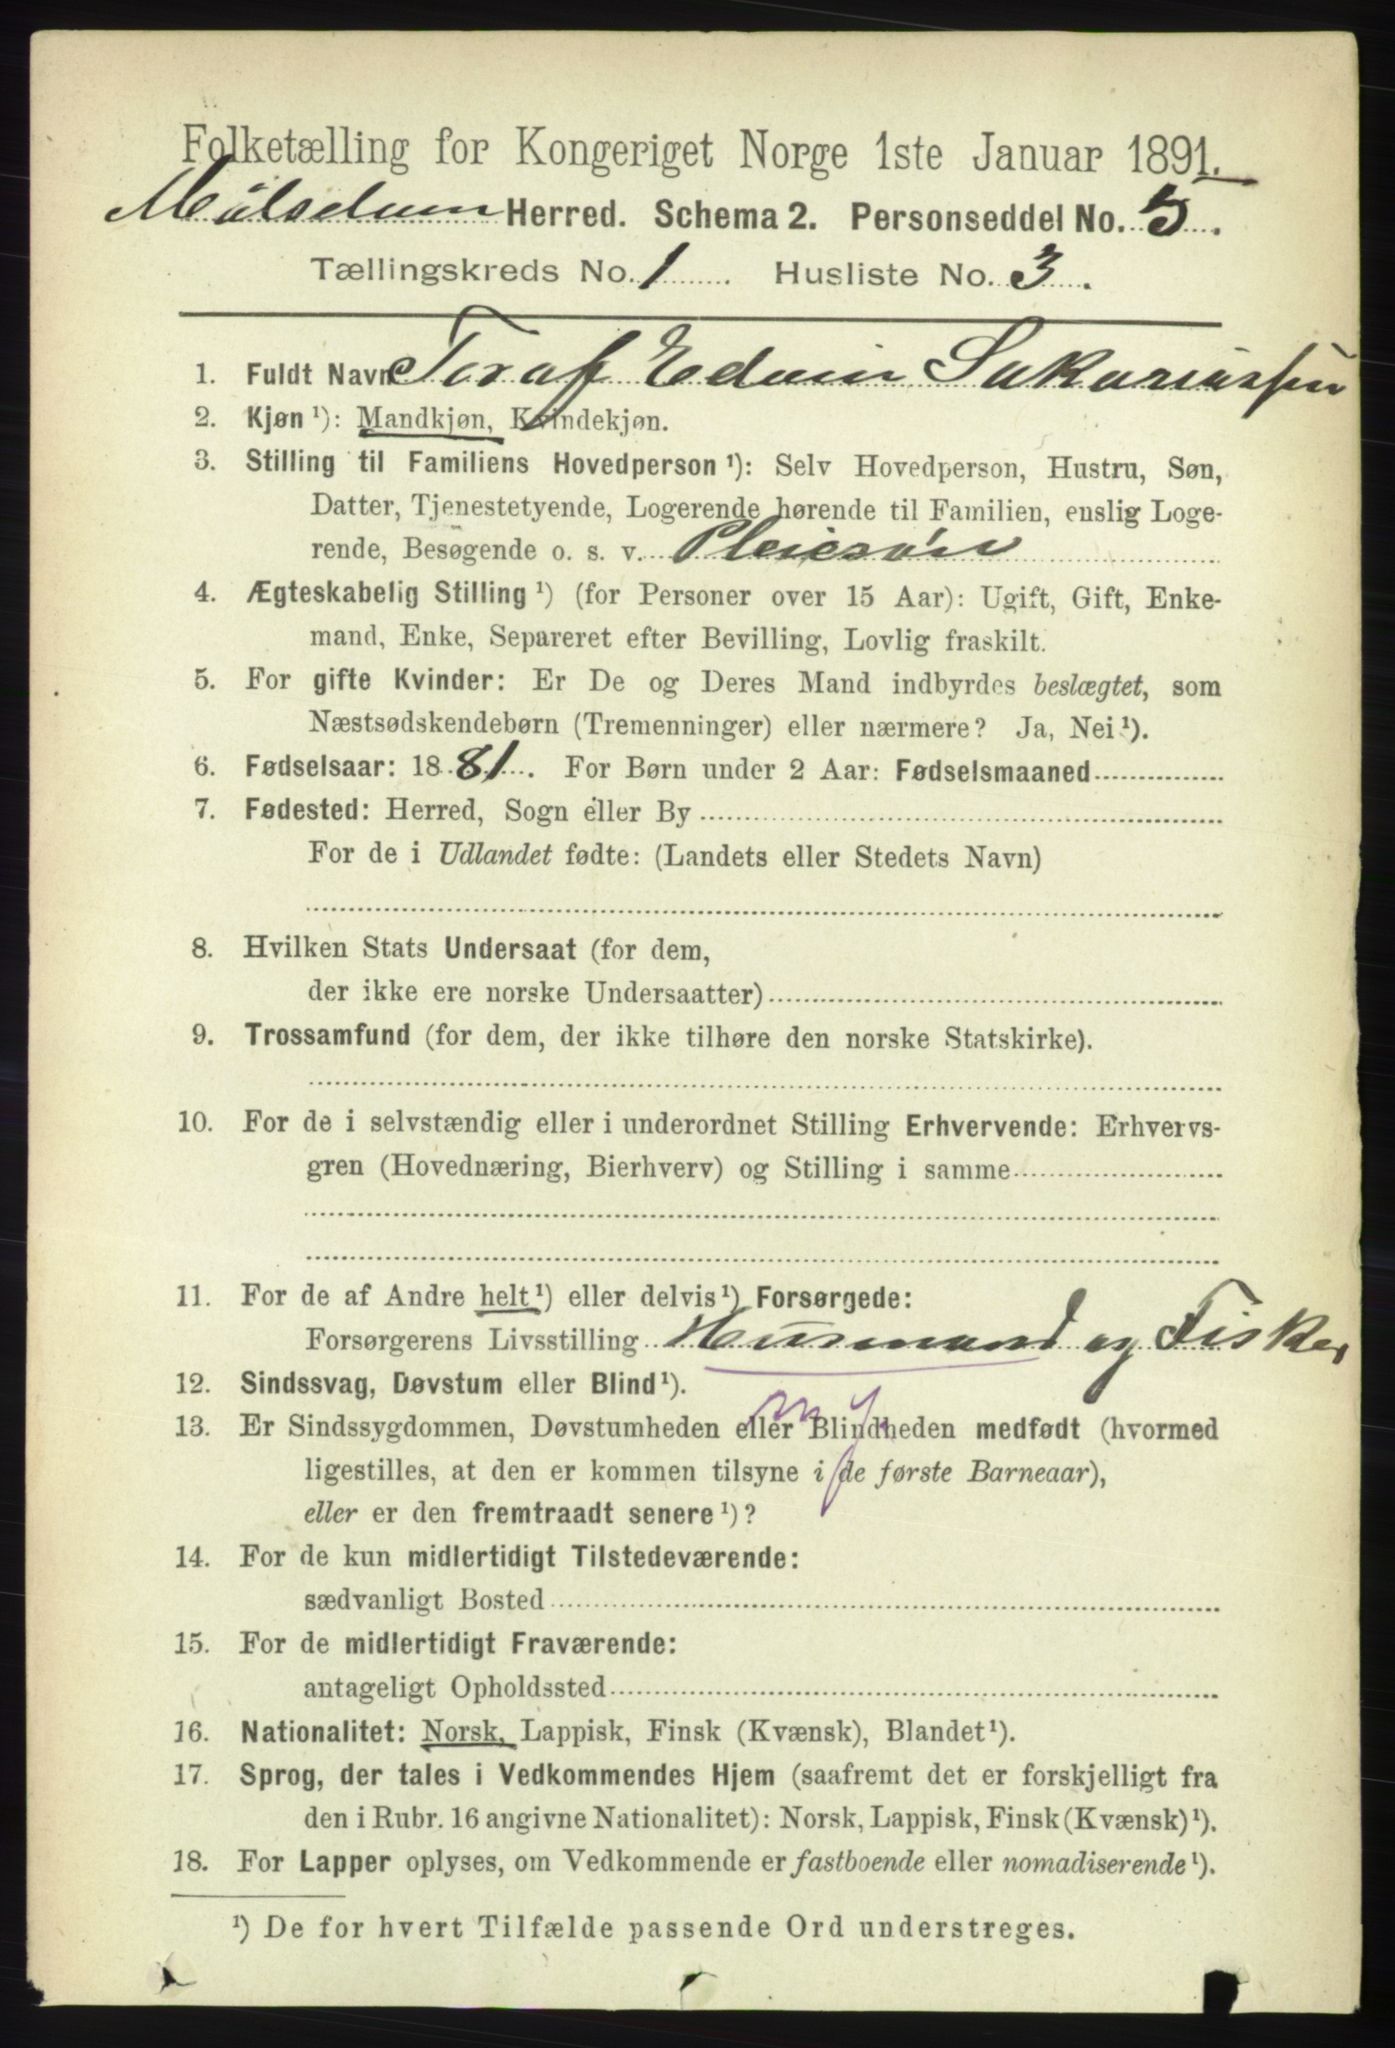 Folketælling for Kongeriget Norge 1ste Januar 1891.
Herred. Schema 2. Personseddel No. 5.
Tællingskreds No. 1. Husliste No. 3.
1. Fuldt Navn Edvin Sakariassen
2. Kjøn ¹): Mandkjøn, Kvindekjøn.
3. Stilling til Familiens Hovedperson ¹): Selv Hovedperson, Hustru, Søn,
Datter, Tjenestetyende, Logerende hørende til Familien, enslig Loge-
rende, Besøgende o. s. v. Pleiesøn
4. Ægteskabelig Stilling ¹) (for Personer over 15 Aar): Ugift, Gift, Enke-
mand, Enke, Separeret efter Bevilling, Lovlig fraskilt.
5. For gifte Kvinder: Er De og Deres Mand indbyrdes beslægtet, som
Næstsødskendebørn (Tremenninger) eller nærmere? Ja, Nei ¹).
6. Fødselsaar: 1881. For Børn under 2 Aar: Fødselsmaaned
7. Fødested: Herred, Sogn eller By
For de i Udlandet fødte: (Landets eller Stedets Navn)
8. Hvilken Stats Undersaat (for dem,
der ikke ere norske Undersaatter)
9. Trossamfund (for dem, der ikke tilhøre den norske Statskirke).
10. For de i selvstændig eller i underordnet Stilling Erhvervende: Erhvervs-
gren (Hovednæring, Bierhverv) og Stilling i samme
11. For de af Andre helt ¹) eller delvis ¹) Forsørgede:
Forsørgerens Livsstilling Husmand og Fisker
12. Sindssvag, Døvstum eller Blind ¹).
13. Er Sindssygdommen, Døvstumheden eller Blindheden medfødt (hvormed
ligestilles, at den er kommen tilsyne i de første Barneaar),
eller er den fremtraadt senere ¹)?
14. For de kun midlertidigt Tilstedeværende:
sædvanligt Bosted
15. For de midlertidigt Fraværende:
antageligt Opholdssted
16. Nationalitet: Norsk, Lappisk, Finsk (Kvænsk), Blandet ¹).
17. Sprog, der tales i Vedkommendes Hjem (saafremt det er forskjelligt fra
den i Rubr. 16 angivne Nationalitet): Norsk, Lappisk, Finsk (Kvænsk) ¹).
18. For Lapper oplyses, om Vedkommende er fastboende eller nomadiserende ¹).
¹) De for hvert Tilfælde passende Ord understreges.